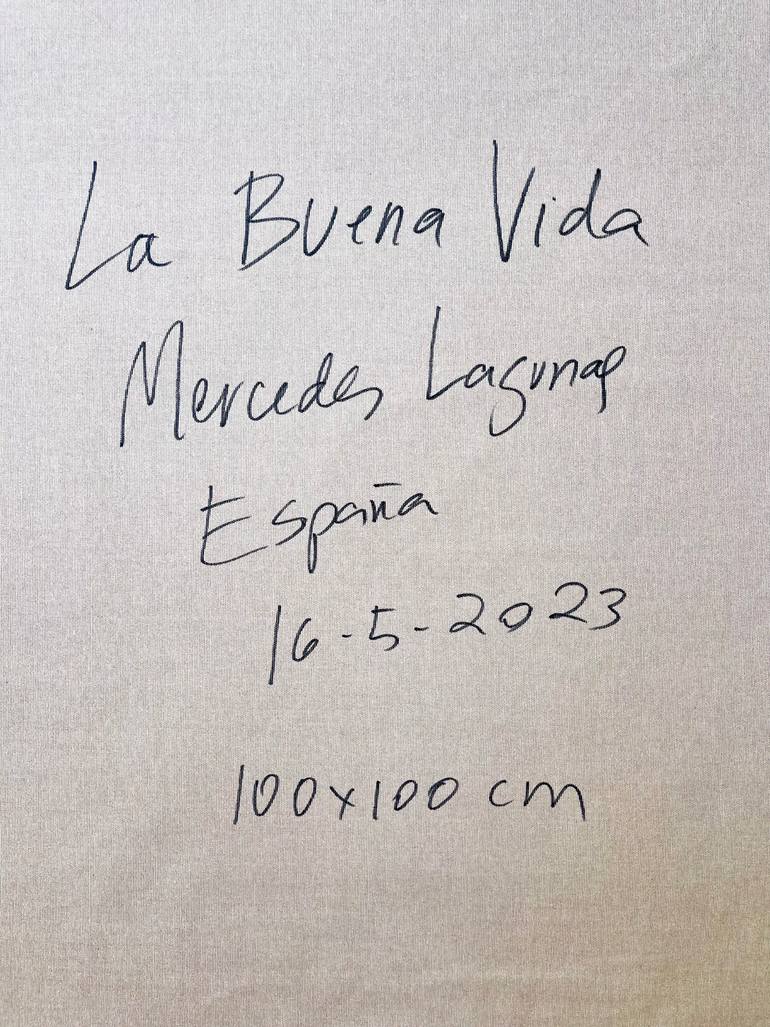 La Buena Vida
Mercedes Lagunas
España
16-5-2023
100x100 cm